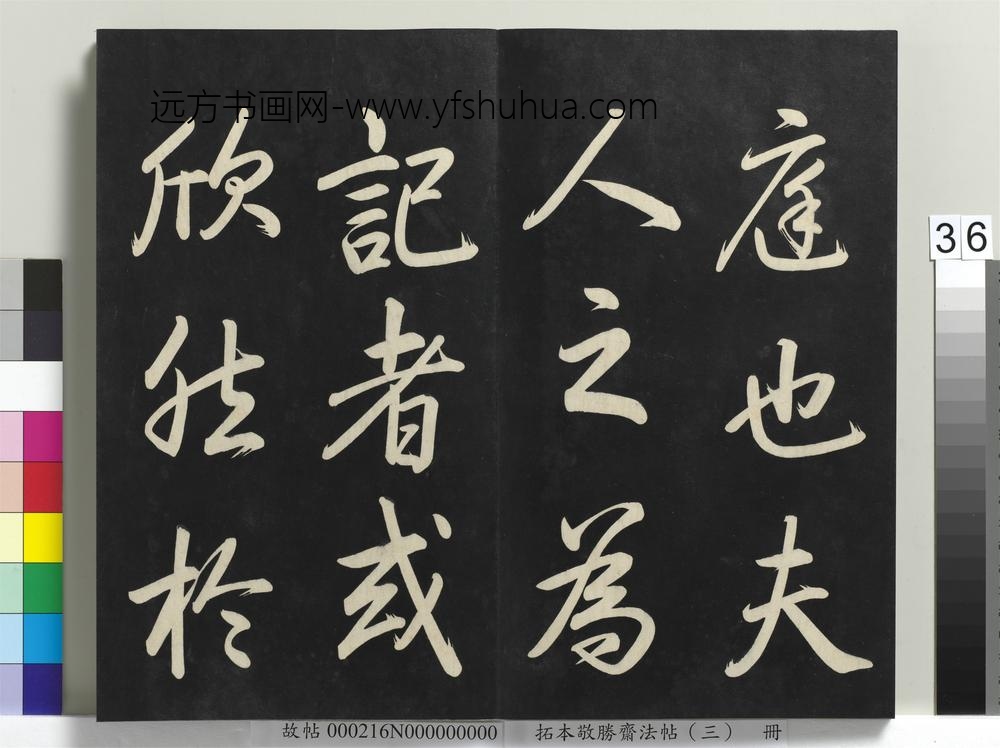 远方书画网-www.yfshuhua.com
庭也夫
人之為
記者或
欣然於
36
故帖 000216N000000000
拓本敬勝齋法帖(三) 冊